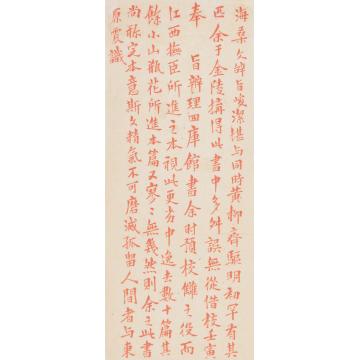 海桑文辞旨峻潔堪与同時黄柳齊驅明初罕有其
匹余于金陵搆得此書中多舛誤無從借校壬寅
奉旨辦理四庫館書余时預校讎之役而
江西撫臣所進之本視此更劣中逸去数十篇其
餘小山瓶花所進本篇又寥〻無幾然則余之此書
尚称完本意斯文精氣不可磨滅孤留人間者与東
原震識